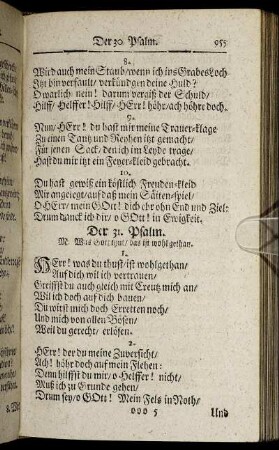 Der 30. Psalm. 955
8.
Wird auch mein Staub/wenn ich ins Grabes Loch
Itzt bin verfault/ verkündgen deine Huld?
O warlich nein! darum vergiß der Schuld/
Hilff/ Helffer! Hilff/ HErr! höhr/ach höhre doch.
9.
Nun/ HErr! du hast mir meine Trauer-klage
Zu einen Tantz und Reyhen itzt gemacht/
Für jenen Sack/ den ich im Leyde trage/
Hast du mir itzt ein Feyer-kleid gebracht.
10.
Du hast gewiß ein köstlich Freuden-kleid
Mir angelegt/auf daß mein Säitenspiel/
O HErr/ mein GOtt! dich ehr ohn End und Ziel:
Drum danck ich dir/ o GOtt! in Ewigkeit.
Der 31. Psalm.
M. Was GOtt thut/ das ist wohl gethan.
1.
HErr! was du thust/ist wohlgethan/
Auf dich wil ich vertrauen/
Greiffst du auch gleich mit Creutz mich an/
Wil ich doch auf dich bauen/
Du wirst mich doch Erretten noch/
Und mich von allen Bösen/
Weil du gerecht/ erlösen.
2.
HErr! der du meine Zuversicht/
Ach! höhr doch auf mein Flehen:
Denn hilffst du mir/ o Helffer! nicht/
Muß ich zu Grunde gehen/
Drum sey/o GOtt! Mein Fels in Noth/
ooo 5 Und